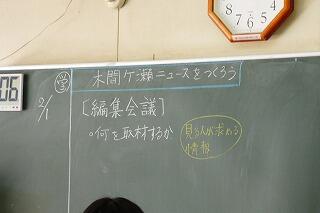 木間ケ瀬ニュースをつくろう
2/1
[編集会議]
○何を取材するか
見る人が求める
情報
06
8 7 6 5 4